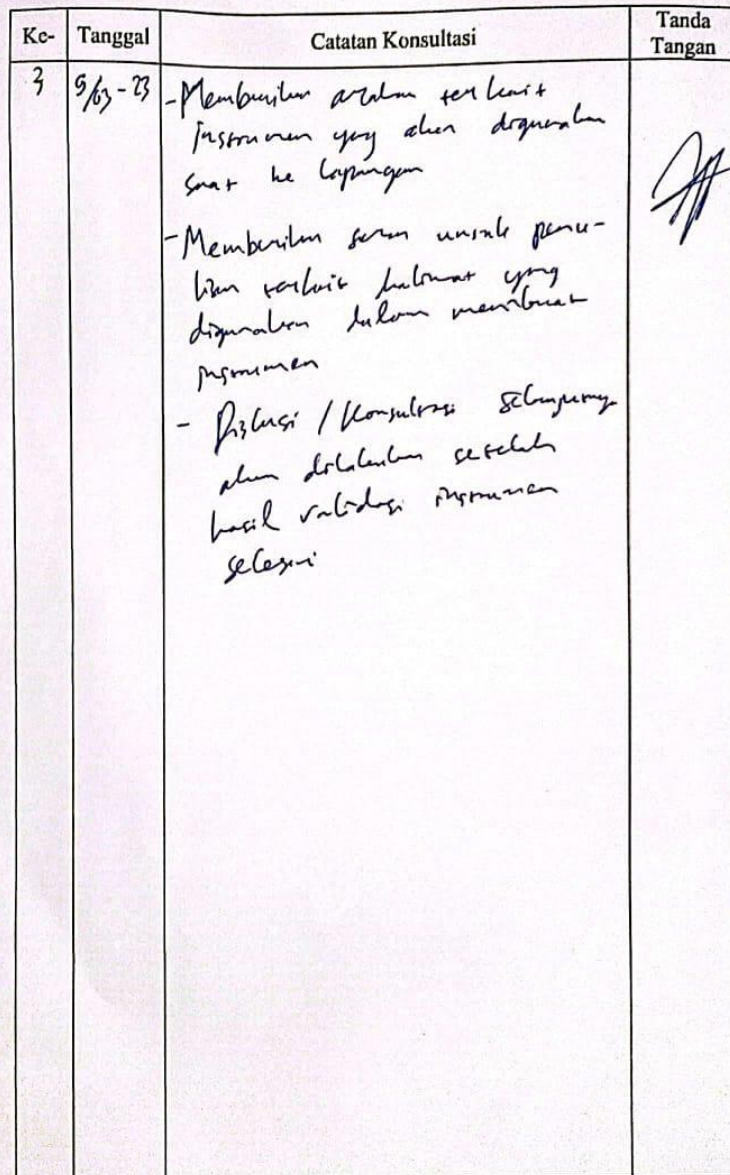 Ke- Tanggal Catatan Konsultasi Tanda Tangan
3 5/03-23 - Memberikan arahan terkait
instrumen yang akan digunakan
saat ke lapangan
- Memberikan saran untuk penu-
lisan terkait kalimat yang
digunakan dalam membuat
instrumen
- Diskusi / Konsultasi selanjutnya
akan dilakukan setelah
hasil validasi instrumen
selesai